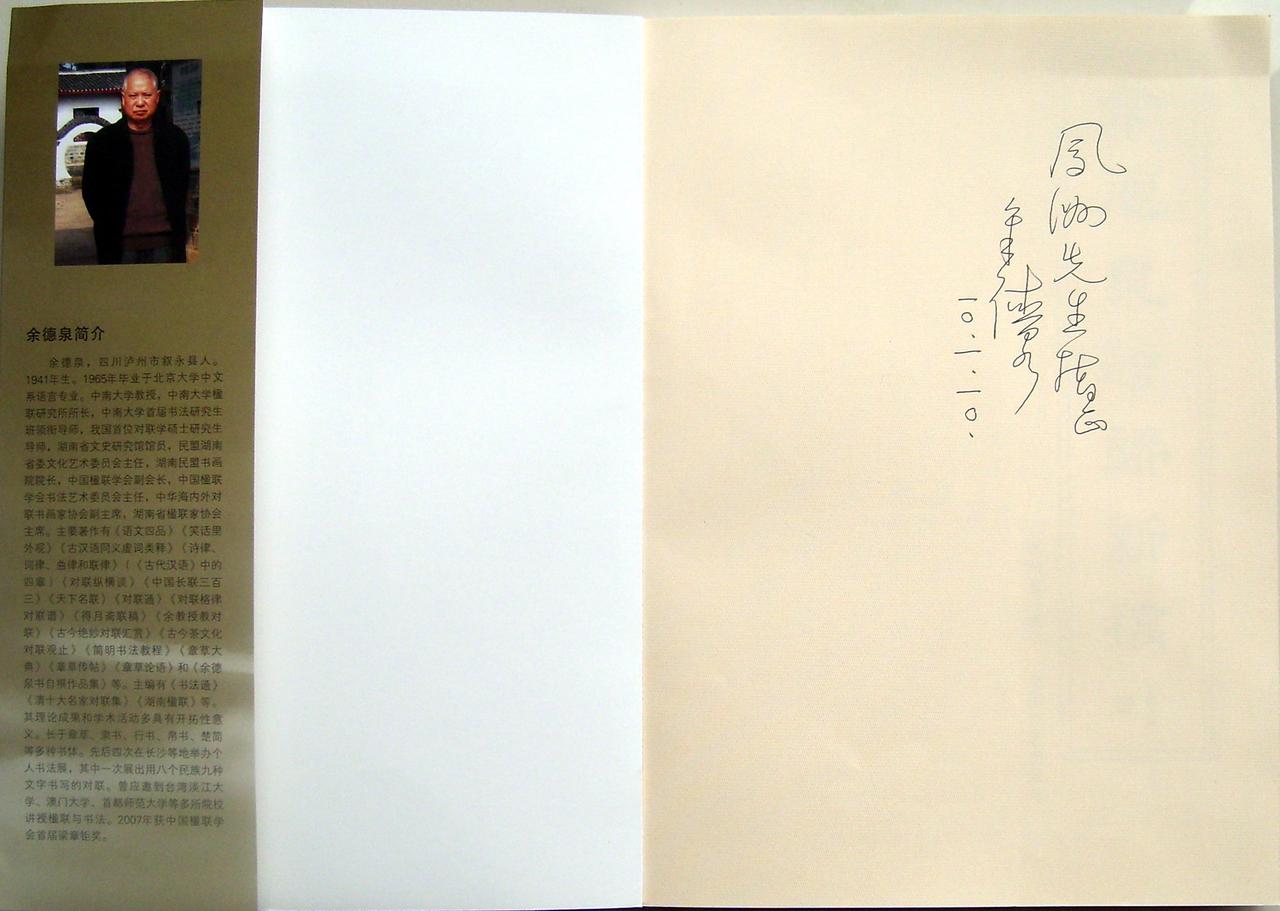 余德泉简介
余德泉，四川泸州市叙永县人。
1941年生。1965年毕业于北京大学中文
系语言专业。中南大学教授，中南大学楹
联研究所所长，中南大学首届书法研究生
班领衔导师，我国首位对联学硕士研究生
导师，湖南省文史研究馆馆员，民盟湖南
省委文化艺术委员会主任，湖南民盟书画
院院长，中国楹联学会副会长，中国楹联
学会书法艺术委员会主任，中华海内外对
联书画家协会副主席，湖南省楹联家协会
主席。主要著作有《语文四品》《笑话里
外观》《古汉语同义虚词类释》《诗律、
词律、曲律和联律》（《古代汉语》中的
四章）《对联纵横谈》《中国长联三百
三》《天下名联》《对联通》《对联格律
对联谱》《得月斋联稿》《余教授教对
联》《古今绝妙对联汇赏》《古今茶文化
对联观止》《简明书法教程》《章草大
典》《章草传帖》《章草论语》和《余德
泉书自撰作品集》等。主编有《书法通》
《清十大名家对联集》《湖南楹联》等。
其理论成果和学术活动多具有开拓性意
义。长于章草、隶书、行书、帛书、楚简
等多种书体。先后四次在长沙等地举办个
人书法展，其中一次展出用八个民族九种
文字书写的对联。曾应邀到台湾淡江大
学、澳门大学、首都师范大学等多所院校
讲授楹联与书法。2007年获中国楹联学
会首届梁章钜奖。
鳳洲先生指正
余德泉
一〇.一.一〇.